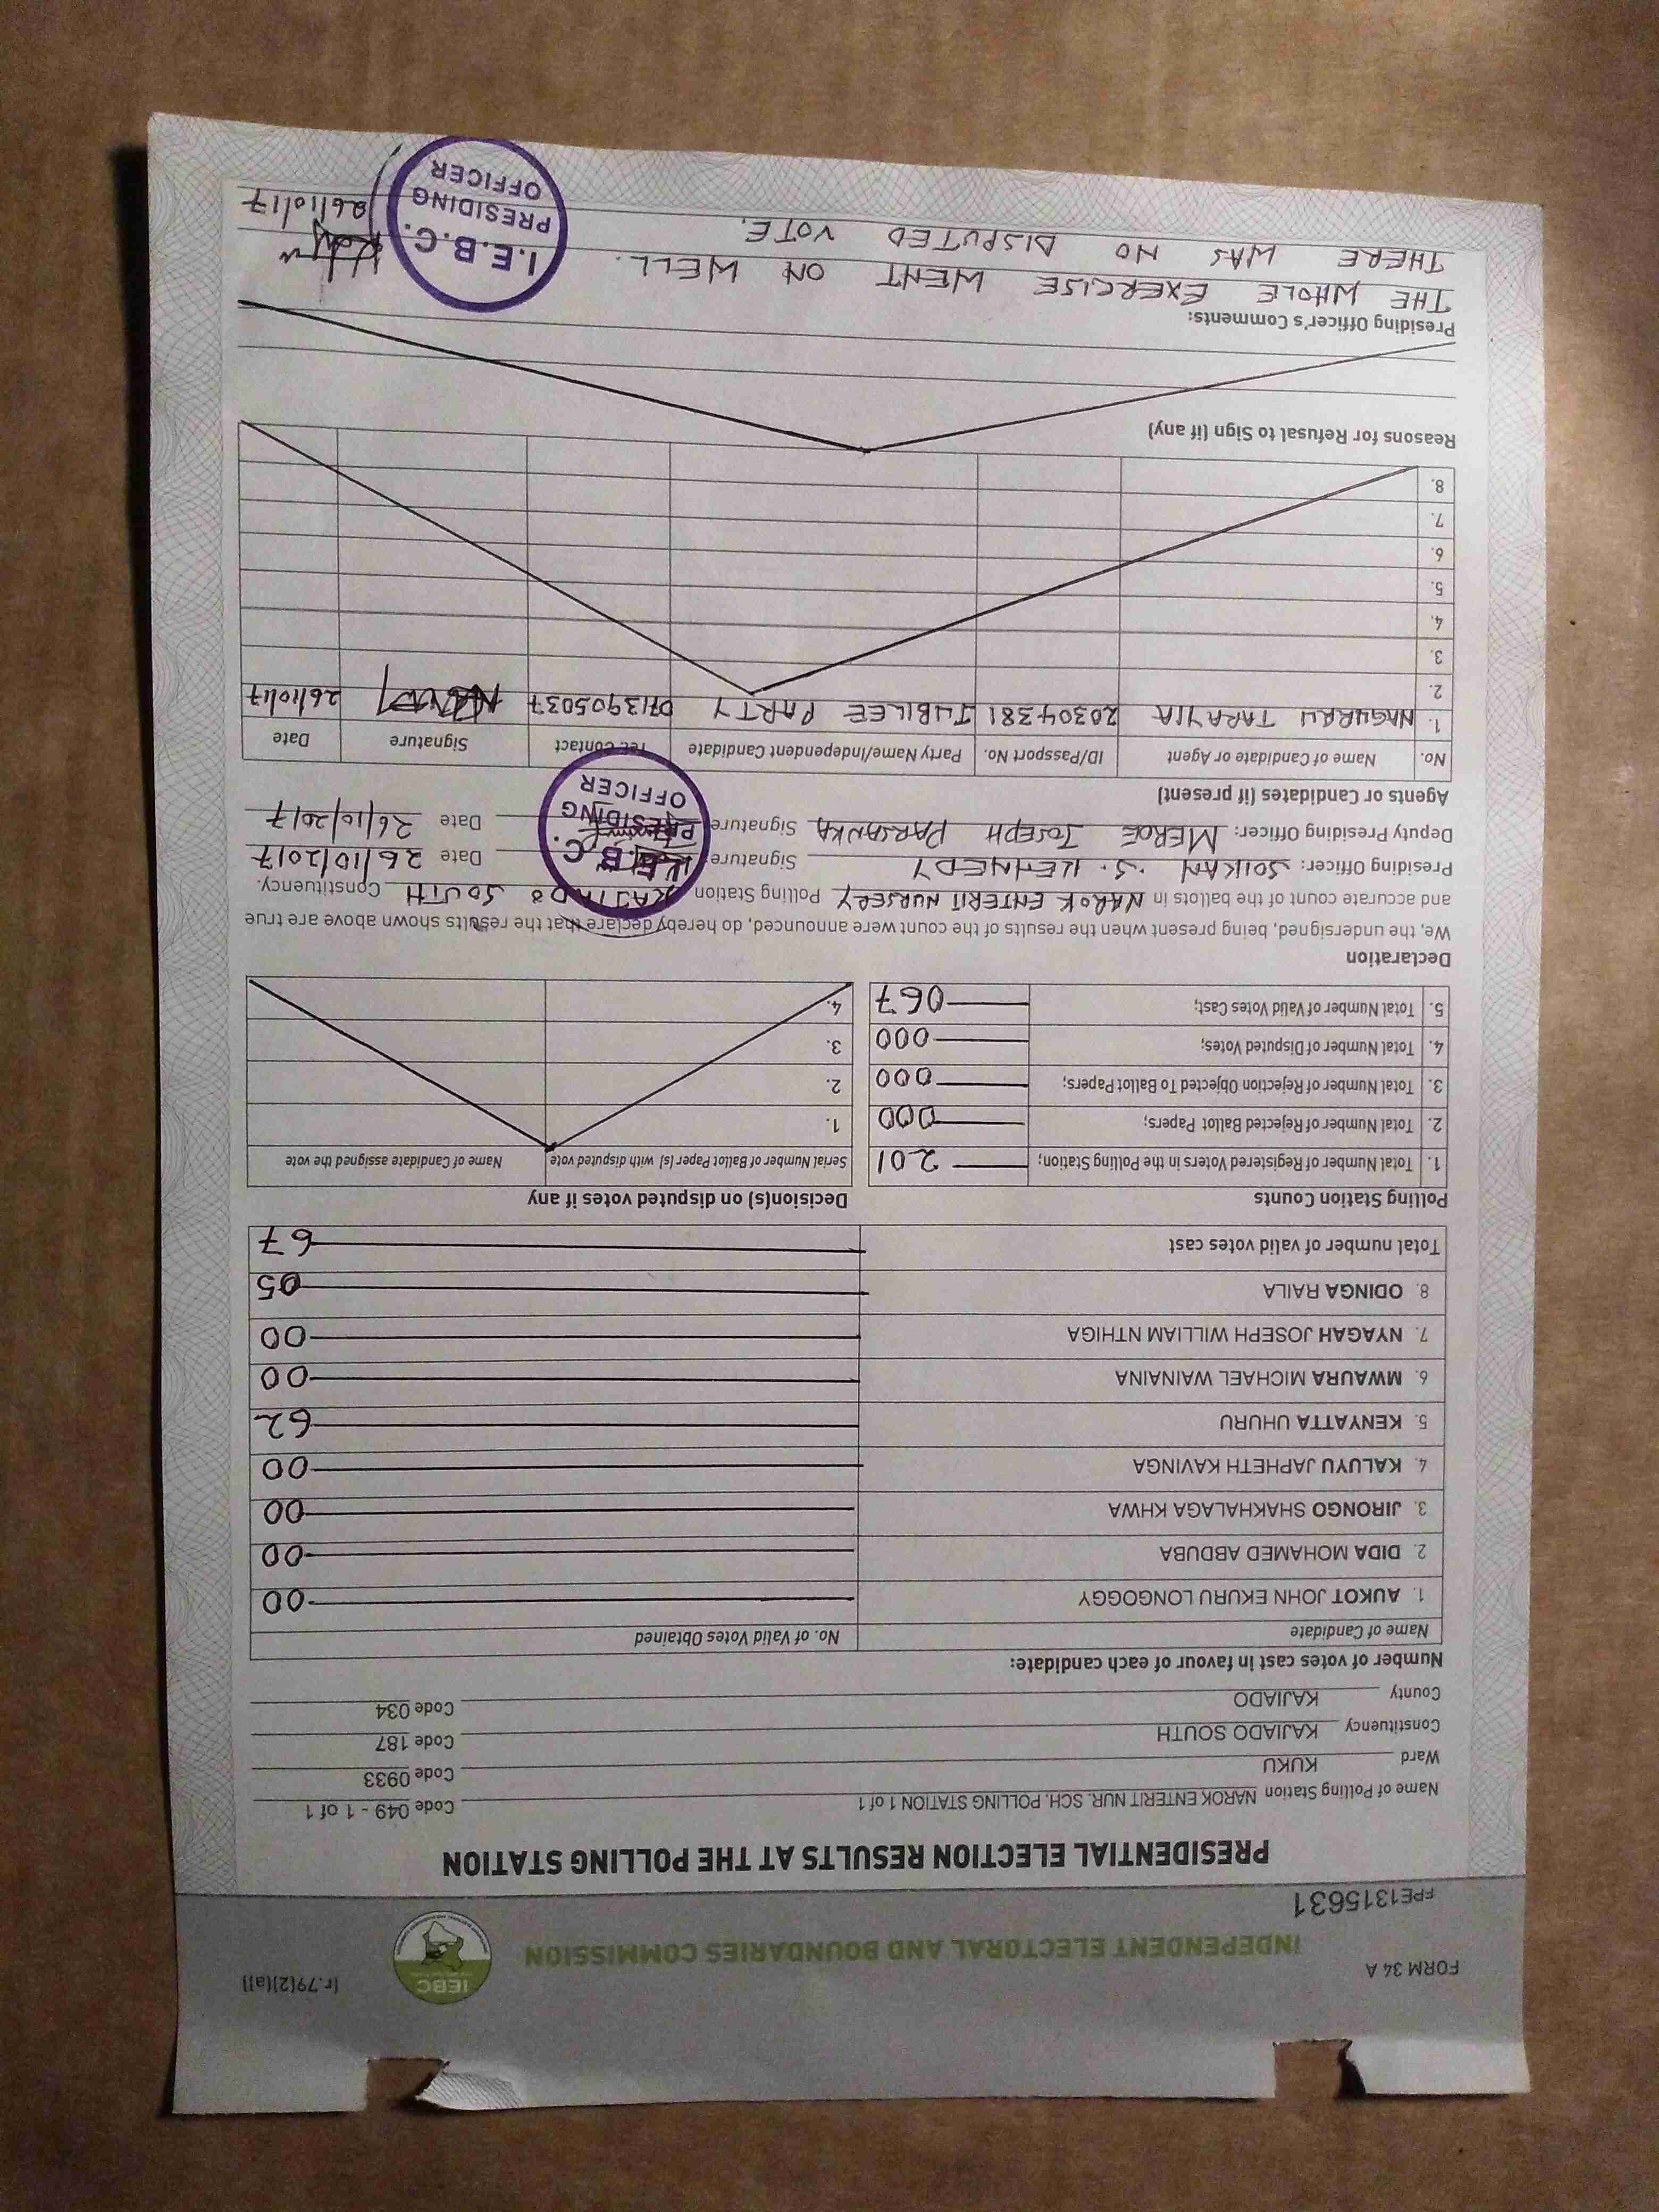 FORM 34 A
INDEPENDENT ELECTORAL AND BOUNDARIES COMMISSION
IEBC
[r.79(2)(a)]
FPE1315631
PRESIDENTIAL ELECTION RESULTS AT THE POLLING STATION
Name of Polling Station NAROK ENTERIT NUR. SCH. POLLING STATION 1 of 1 Code 049 - 1 of 1
Ward KUKU Code 0933
Constituency KAJIADO SOUTH Code 187
County KAJIADO Code 034
Number of votes cast in favour of each candidate:
Name of Candidate No. of Valid Votes Obtained
1. AUKOT JOHN EKURU LONGOGGY 00
2. DIDA MOHAMED ABDUBA 00
3. JIRONGO SHAKHALAGA KHWA 00
4. KALUYU JAPHETH KAVINGA 00
5. KENYATTA UHURU 62
6. MWAURA MICHAEL WAINAINA 00
7. NYAGAH JOSEPH WILLIAM NTHIGA 00
8. ODINGA RAILA 05
Total number of valid votes cast 67
Polling Station Counts
1. Total Number of Registered Voters in the Polling Station; 201
2. Total Number of Rejected Ballot Papers; 000
3. Total Number of Rejection Objected To Ballot Papers; 000
4. Total Number of Disputed Votes; 000
5. Total Number of Valid Votes Cast; 067
Decision(s) on disputed votes if any
Serial Number of Ballot Paper (s) with disputed vote Name of Candidate assigned the vote
1.
2.
3.
4.
Declaration
We, the undersigned, being present when the results of the count were announced, do hereby declare that the results shown above are true
and accurate count of the ballots in NAROK ENTERIT NURSERY Polling Station KAJIADO SOUTH Constituency.
Presiding Officer: SOIKAN .S. KENNEDY Signature: Date 26/10/2017
Deputy Presiding Officer: MEROE JOSEPH PARSANKA Signature: Date 26/10/2017
I.E.B.C.
PRESIDING
OFFICER
Agents or Candidates (if present)
No. Name of Candidate or Agent ID/Passport No. Party Name/Independent Candidate Tel. Contact Signature Date
1. NAGURRU TARAYIA 20304381 JUBILEE PARTY 0713905037 26/10/17
2.
3.
4.
5.
6.
7.
8.
Reasons for Refusal to Sign (if any)
Presiding Officer's Comments:
THE WHOLE EXERCISE WENT ON WELL.
THERE WAS NO DISPUTED VOTE. 26/10/17
I.E.B.C.
PRESIDING
OFFICER